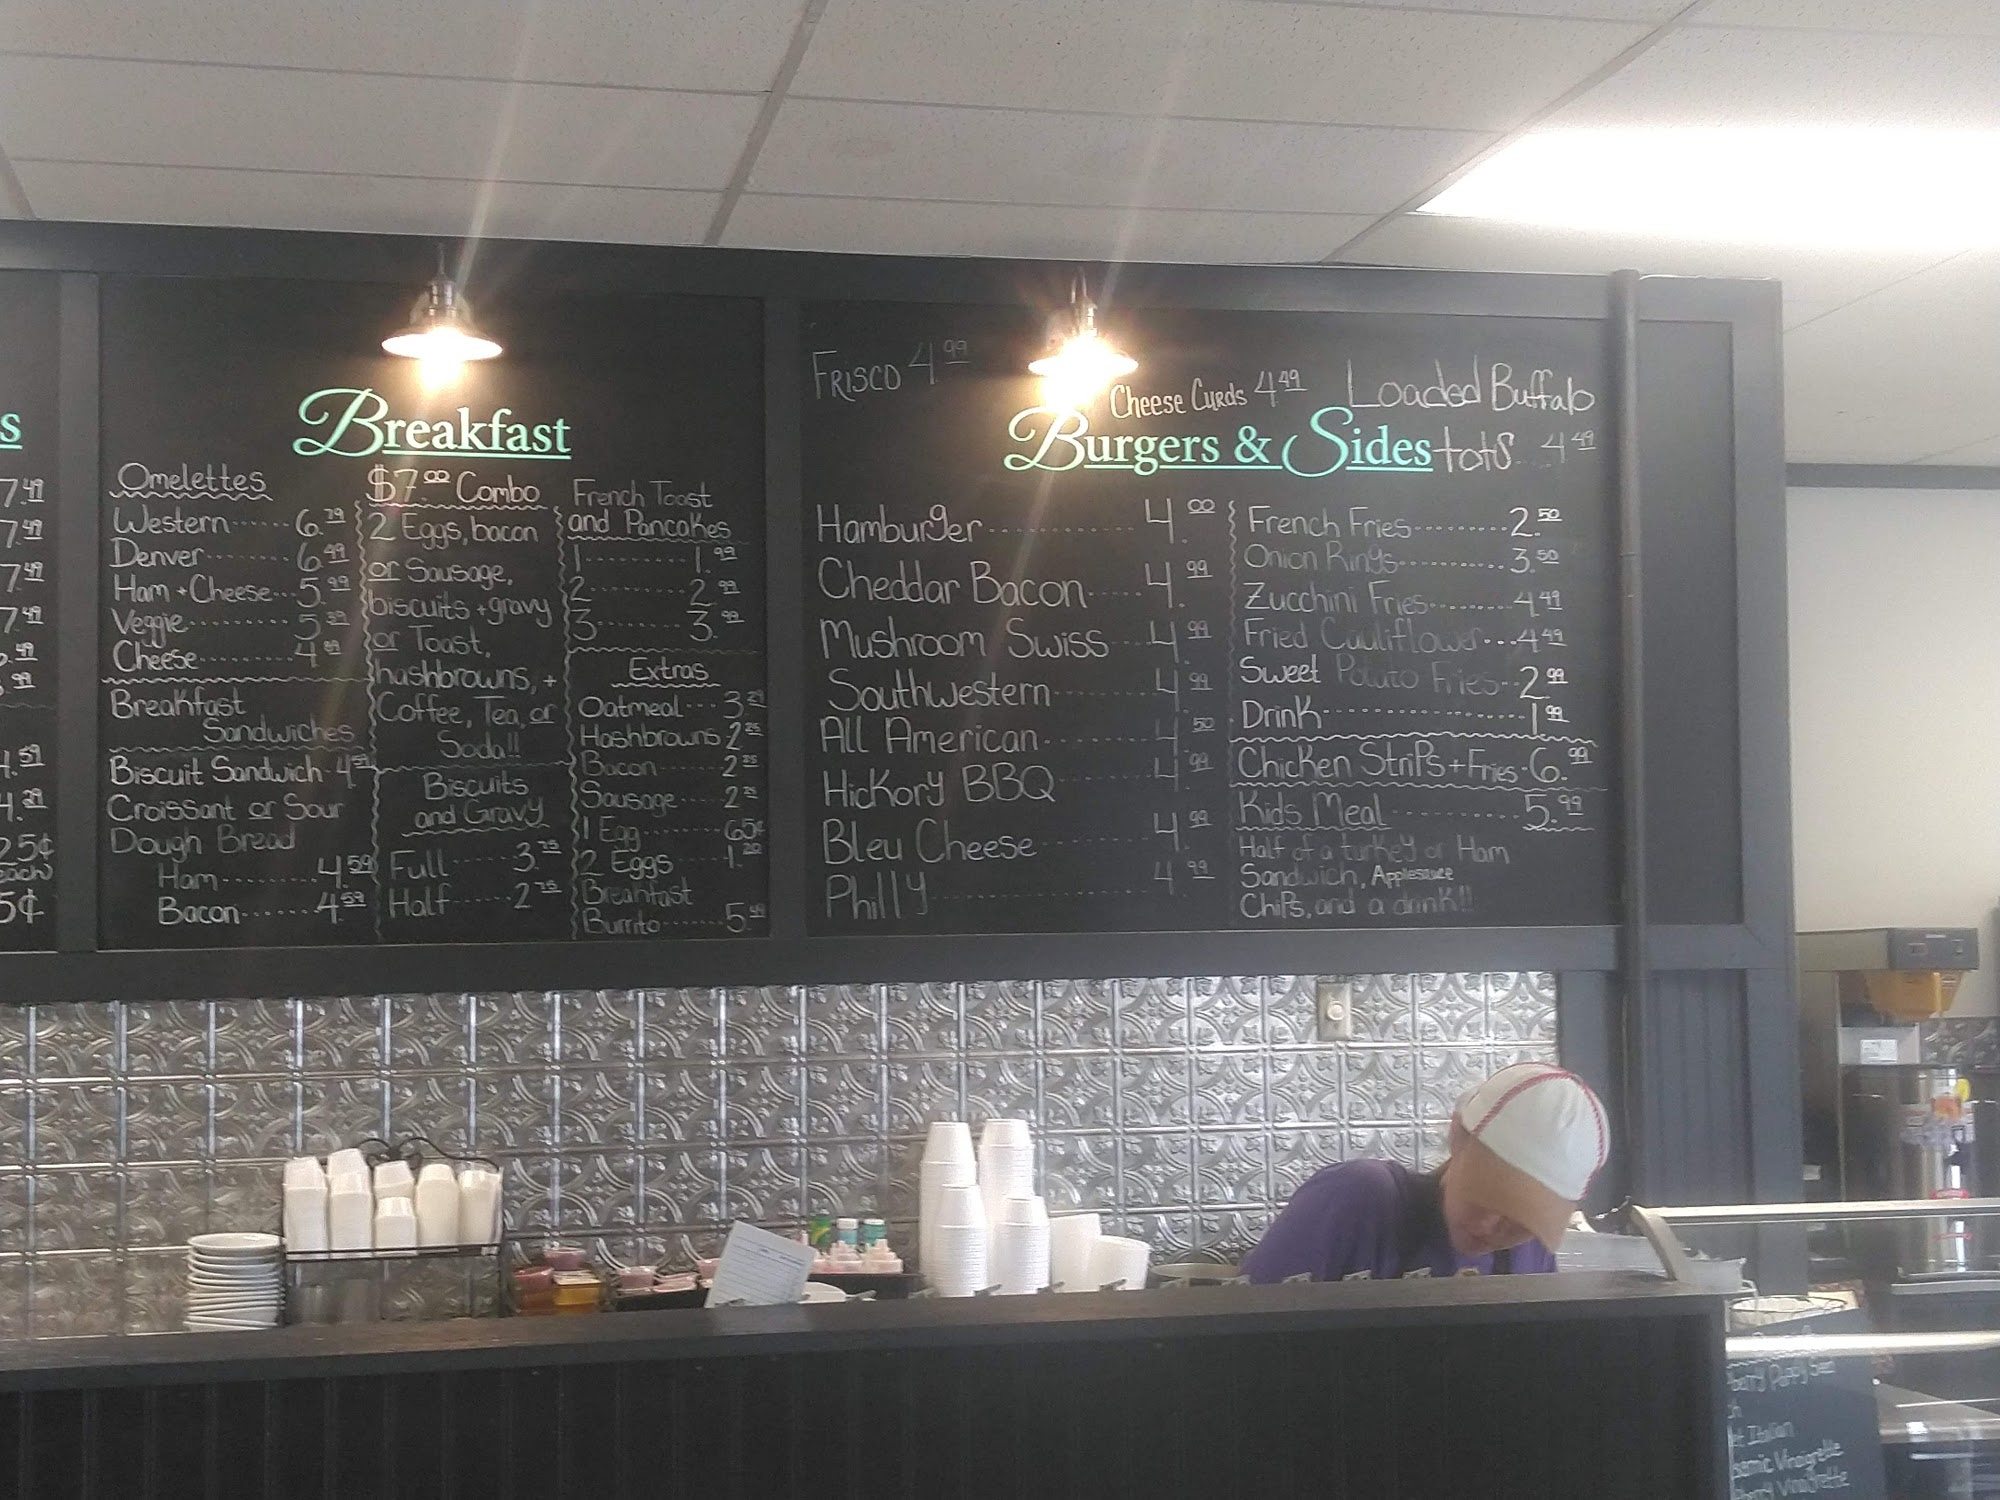 s
7.49
7.49
7.49
7.49
.49
.99
4.59
4.29
25¢
each)
5¢
Breakfast
Omelettes
Western 6.79
Denver 6.49
Ham + Cheese 5.99
Veggie 5.39
Cheese 4.89
Breakfast
Sandwiches
Biscuit Sandwich 4.59
Croissant or Sour
Dough Bread
Ham 4.59
Bacon 4.59
$7.00 Combo
2 Eggs, bacon
or Sausage,
biscuits + gravy
or Toast,
hashbrowns, +
Coffee, Tea, or
Soda!!
Biscuits
and Gravy
Full 3.75
Half 2.75
French Toast
and Pancakes
1 1.99
2 2.99
3 3.99
Extras
Oatmeal 3.29
Hashbrowns 2.25
Bacon 2.25
Sausage 2.25
1 Egg 65¢
2 Eggs 1.20
Breakfast
Burrito 5.49
Frisco 4.99
Cheese Curds 4.49
Loaded Buffalo
tots 4.49
Burgers & Sides
Hamburger 4.00
Cheddar Bacon 4.99
Mushroom Swiss 4.99
Southwestern 4.99
All American 4.50
Hickory BBQ 4.99
Bleu Cheese 4.99
Philly 4.99
French Fries 2.50
Onion Rings 3.50
Zucchini Fries 4.49
Fried Cauliflower 4.49
Sweet Potato Fries 2.99
Drink 1.99
Chicken Strips + Fries 6.99
Kids Meal 5.99
Half of a turkey or Ham
Sandwich, Applesauce
Chips, and a drink!!
Poppy Seed
Italian
Vinaigrette
Vinaigrette